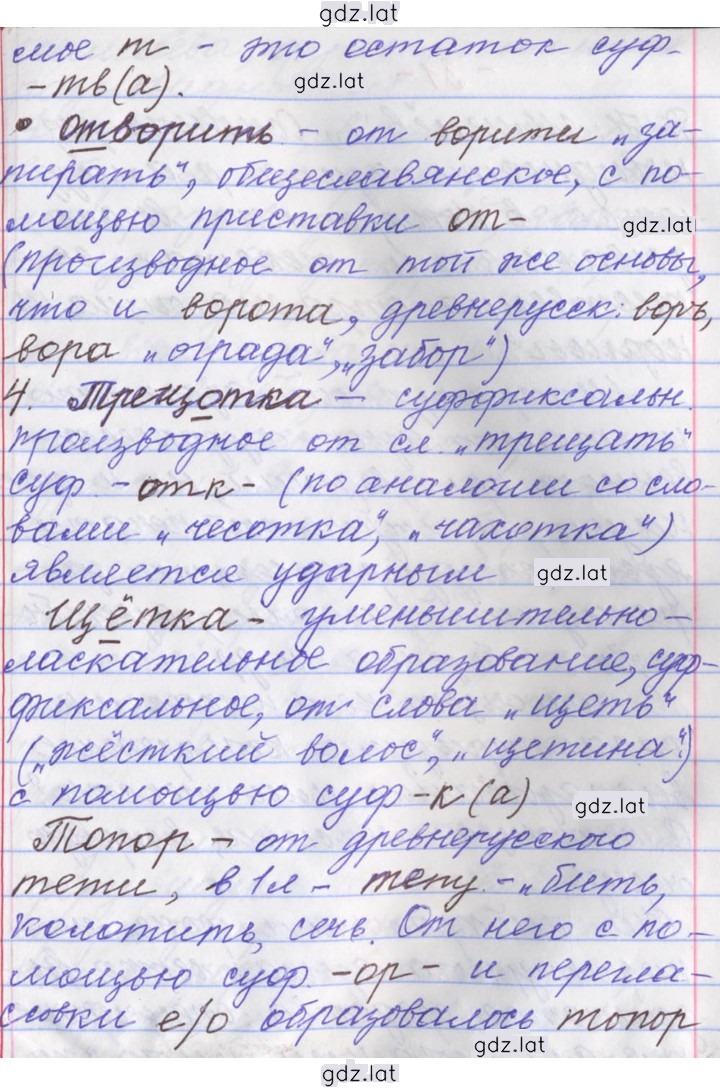 gdz.lat
мое т - это остаток суф-
-тв(а). gdz.lat
• отворить - от ворити „за-
пирать“, общеславянское, с по-
мощью приставки от- gdz.lat
(производное от той же основы,
что и ворота, древнерусск: воръ,
вора „ограда“, „забор“)
4. Трещотка – суффиксальн.
производное от сл. „трещать“
суф. -отк- (по аналогии со сло-
вами „чесотка“, „чахотка“)
является ударным gdz.lat
Щётка - уменьшительно-
ласкательное образование, суф-
фиксальное, от слова „щеть“
(„жёсткий волос“, „щетина“)
с помощью суф -к(а) gdz.lat
Топор – от древнерусского
тети, в 1л – тепу - „бить,
колотить, сечь. От него с по-
мощью суф. -ор- и перегла-
совки е/о образовалось топор
gdz.lat
gdz.lat